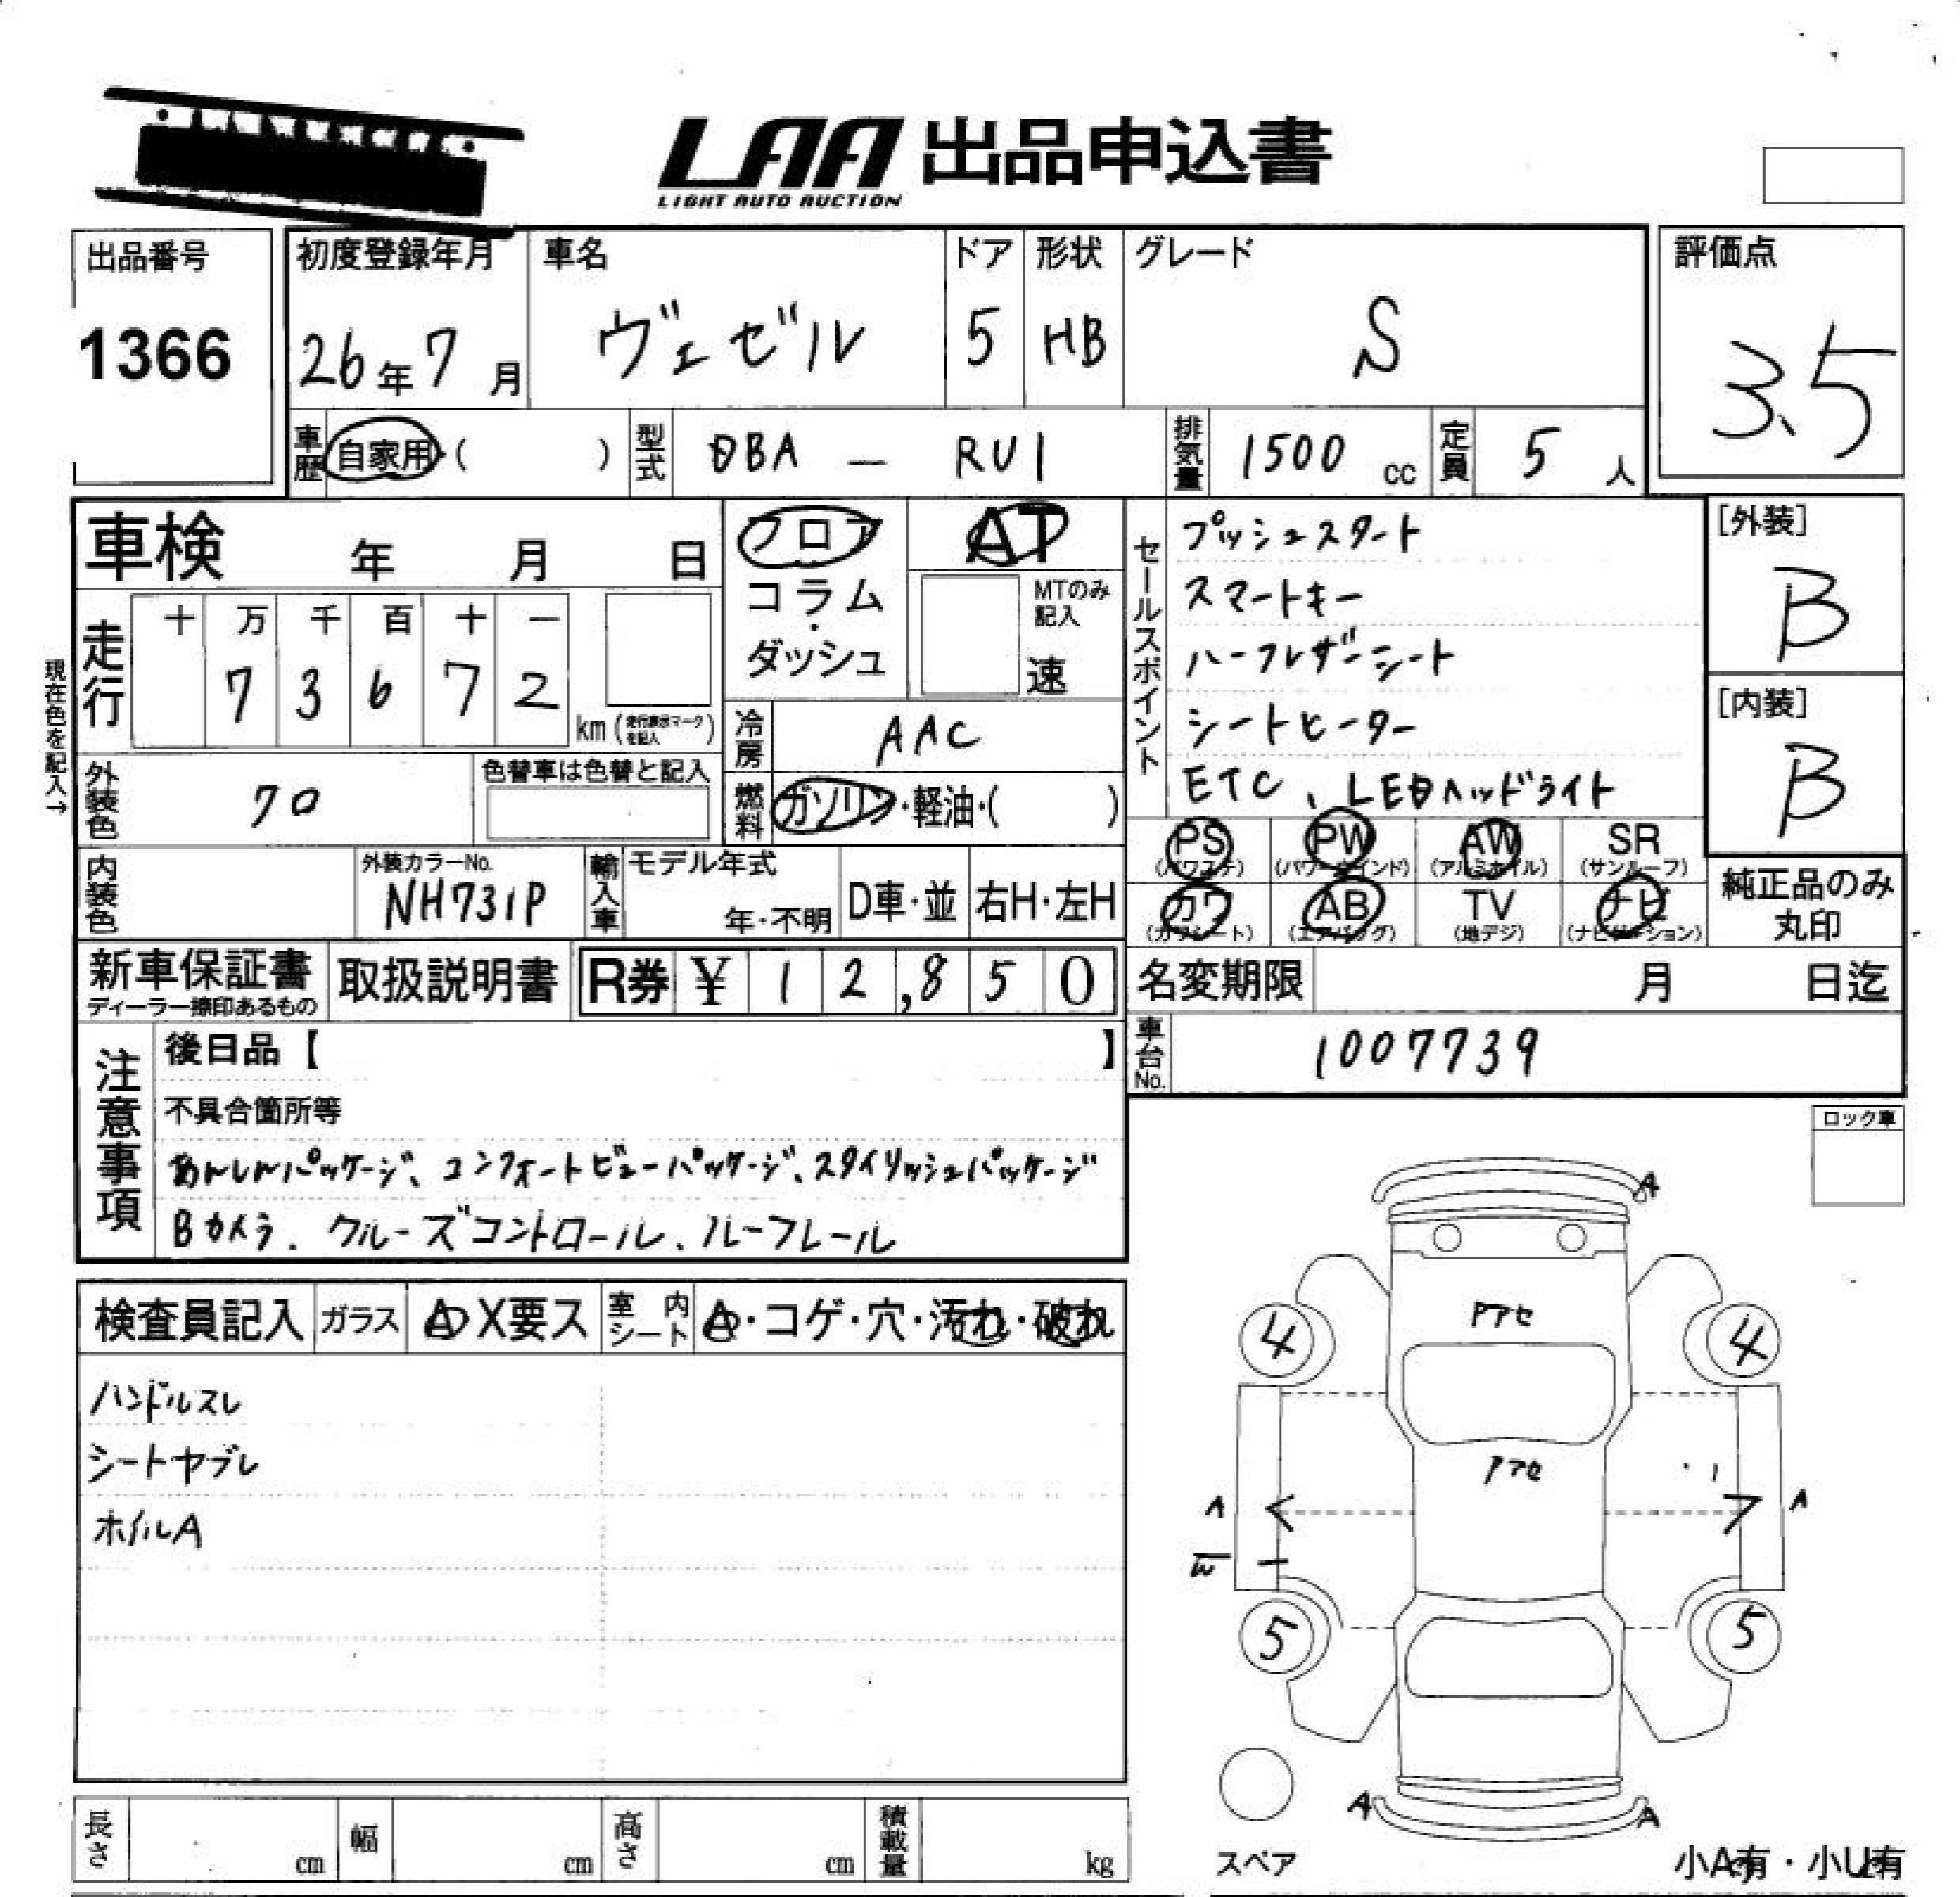 LAA 出品申込書
LIGHT AUTO AUCTION
出品番号
1366
初度登録年月
26年7月
車名
ヴェゼル
ドア
5
形状
HB
グレード
S
評価点
3.5
車歴
自家用・( )
型式
DBA — RU1
排気量
1500 cc
定員
5人
車検 年 月 日
フロア
コラム・ダッシュ
AT
MTのみ記入
速
セールスポイント
プッシュスタート
スマートキー
ハーフレザーシート
シートヒーター
ETC、LEDヘッドライト
[外装]
B
[内装]
B
現在色を記入→
走行
十 万 千 百 十 一
7 3 6 7 2
km (走行表示マークを記入)
冷房
AAC
外装色
クロ
色替車は色替と記入
燃料
ガソリン・軽油・( )
PS (パワステ)
PW (パワーウインド)
AW (アルミホイル)
SR (サンルーフ)
カワ (カワシート)
AB (エアバッグ)
TV (地デジ)
ナビ (ナビゲーション)
純正品のみ丸印
内装色
外装カラーNo.
NH731P
輸入車
モデル年式
年・不明
D車・並
右H・左H
新車保証書
ディーラー捺印あるもの
取扱説明書
R券 ¥ 12,850
名変期限 月 日迄
車台No.
1007739
注意事項
後日品【 】
不具合箇所等
あんしんパッケージ、コンフォートビューパッケージ、スタイリッシュパッケージ
Bカメラ、クルーズコントロール、ルーフレール
ロック車
検査員記入
ガラス
A X要ス
室内シート
A・コゲ・穴・汚れ・破れ
ハンドルスレ
シートヤブレ
ホイルA
A
Pアセ
4 4
Pアセ
A A
5 5
A A
スペア
小A有・小U有
長さ cm
幅 cm
高さ cm
積載量 kg